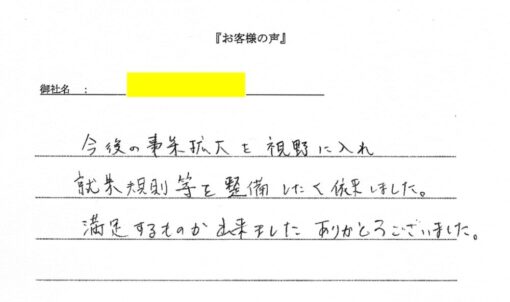 『お客様の声』
御社名 :
今後の事業拡大を視野に入れ
就業規則等を整備したく依頼しました。
満足するものが出来ました ありがとうございました。